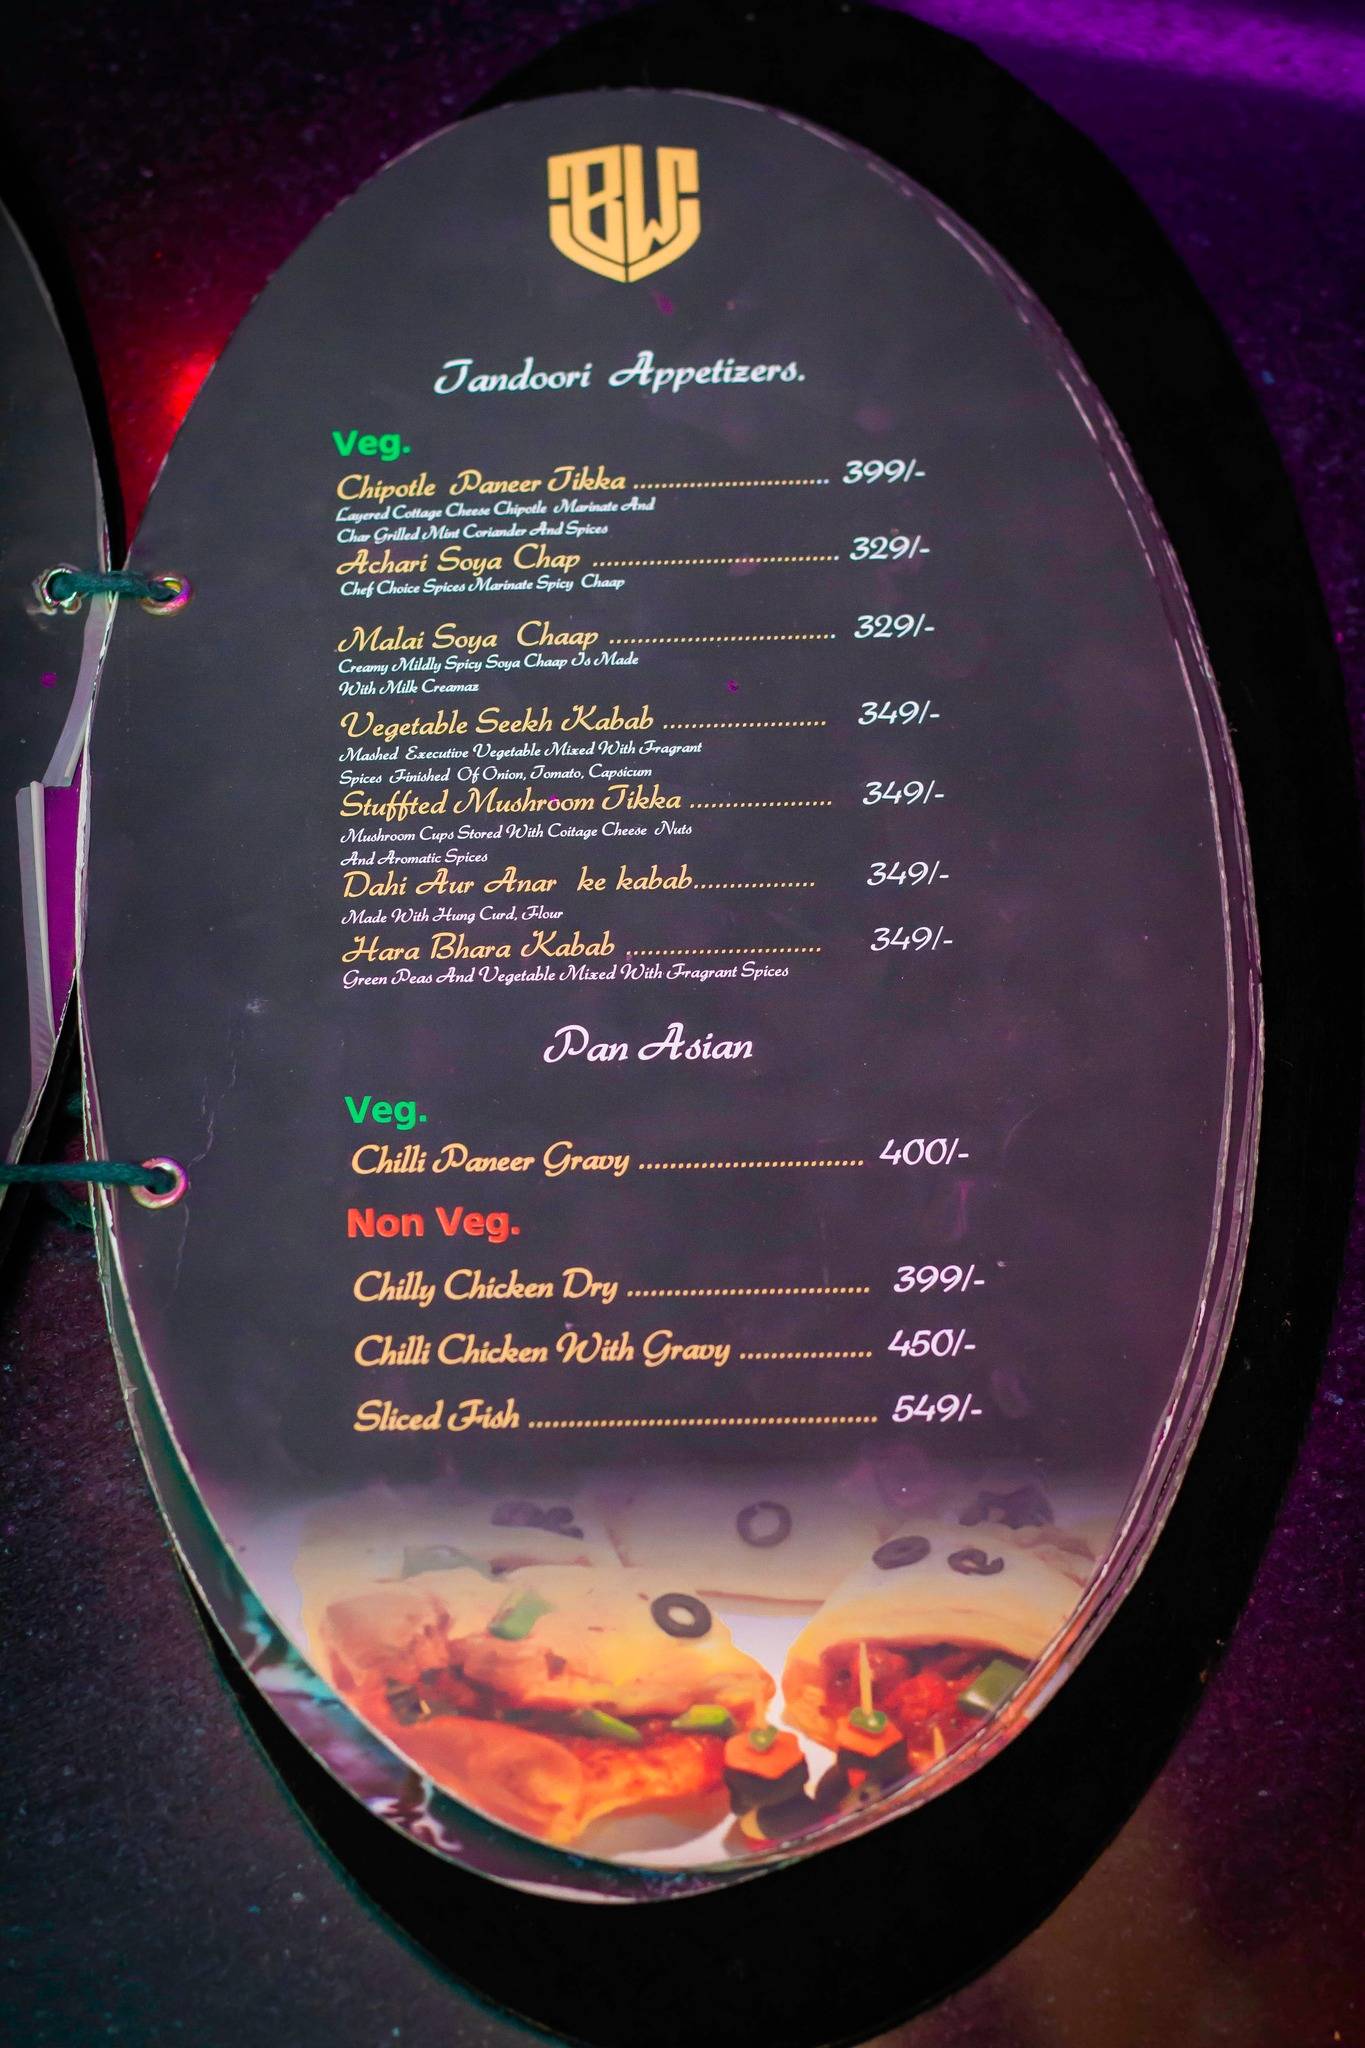 BW
Tandoori Appetizers.
Veg.
Chipotle Paneer Tikka ............................ 399/-
Layered Cottage Cheese Chipotle Marinate And
Char Grilled Mint Coriander And Spices
Achari Soya Chap ................................... 329/-
Chef Choice Spices Marinate Spicy Chaap
Malai Soya Chaap ................................ 329/-
Creamy Mildly Spicy Soya Chaap Is Made
With Milk Creamaz
Vegetable Seekh Kabab ....................... 349/-
Mashed Executive Vegetable Mixed With Fragrant
Spices Finished Of Onion, Tomato, Capsicum
Stuffted Mushroom Tikka .................... 349/-
Mushroom Cups Stored With Coitage Cheese Nuts
And Aromatic Spices
Dahi Aur Anar ke kabab................. 349/-
Made With Hung Curd, Flour
Hara Bhara Kabab ........................... 349/-
Green Peas And Vegetable Mixed With Fragrant Spices
Pan Asian
Veg.
Chilli Paneer Gravy ............................. 400/-
Non Veg.
Chilly Chicken Dry ............................... 399/-
Chilli Chicken With Gravy ................. 450/-
Sliced Fish ............................................. 549/-